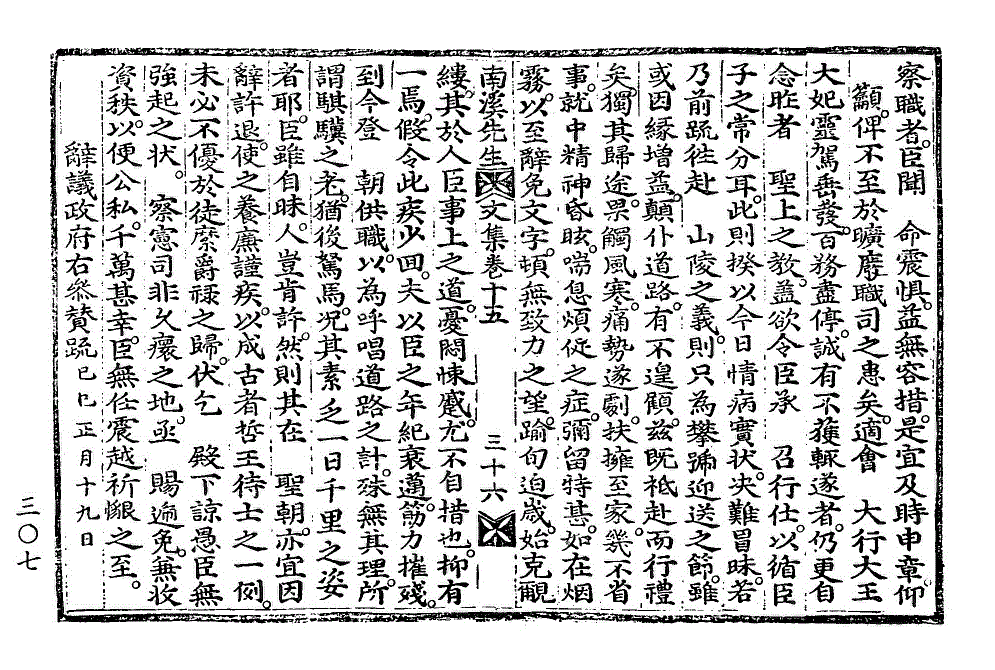 察職者。臣聞　命震惧。益無容措。是宜及時申章。仰
籲。俾不至於曠廢職司之患矣。適會　大行大王
大妃靈駕啚發。百務盡停。誠有不獲輒遂者。仍更自
念昨者　聖上之教。盖欲令臣承　召行仕。以循臣
子之常分耳。此則揆以今日情病實状。决難冒昧。若
乃前疏徃赴　山陵之義。則只為攀號迎送之節。雖
或因縁增益。顛仆道路。有不遑顧。玆既祗赴而行禮
矣。獨其歸途。果觸風寒。痛勢遂劇。扶擁至家。幾不省
事。就中精神昏眩。喘息煩促之症。彌留特甚。如在烟
霧。以至辭免文字。頓無致力之望。踰旬迫歳。始克覼
南溪先生文集卷十五　三十六
縷。其於人臣事上之道。憂悶悚蹙。尤不自措也。抑有
一焉。假令此疾少回。夫以臣之年紀衰邁。筋力摧殘。
到今登　朝供職。以為呼唱道路之計。殊無其理。所
謂騏驥之老。猶後駑馬。况其素乏一日千里之姿
者耶。臣雖自昧。人豈肯許。然則其在　聖朝。亦宜因
辭許退。使之養廉謹疾。以成古者哲王待士之一例。
未必不優於徒縻爵禄之歸。伏乞　殿下諒愚臣無
強起之状。　察憲司非久癏之地。亟　賜遞免。兼收
資秩。以便公私。千萬甚幸。臣無任震越祈懇之至。
辭議政府右參贊疏 己巳正月十九日
三〇七